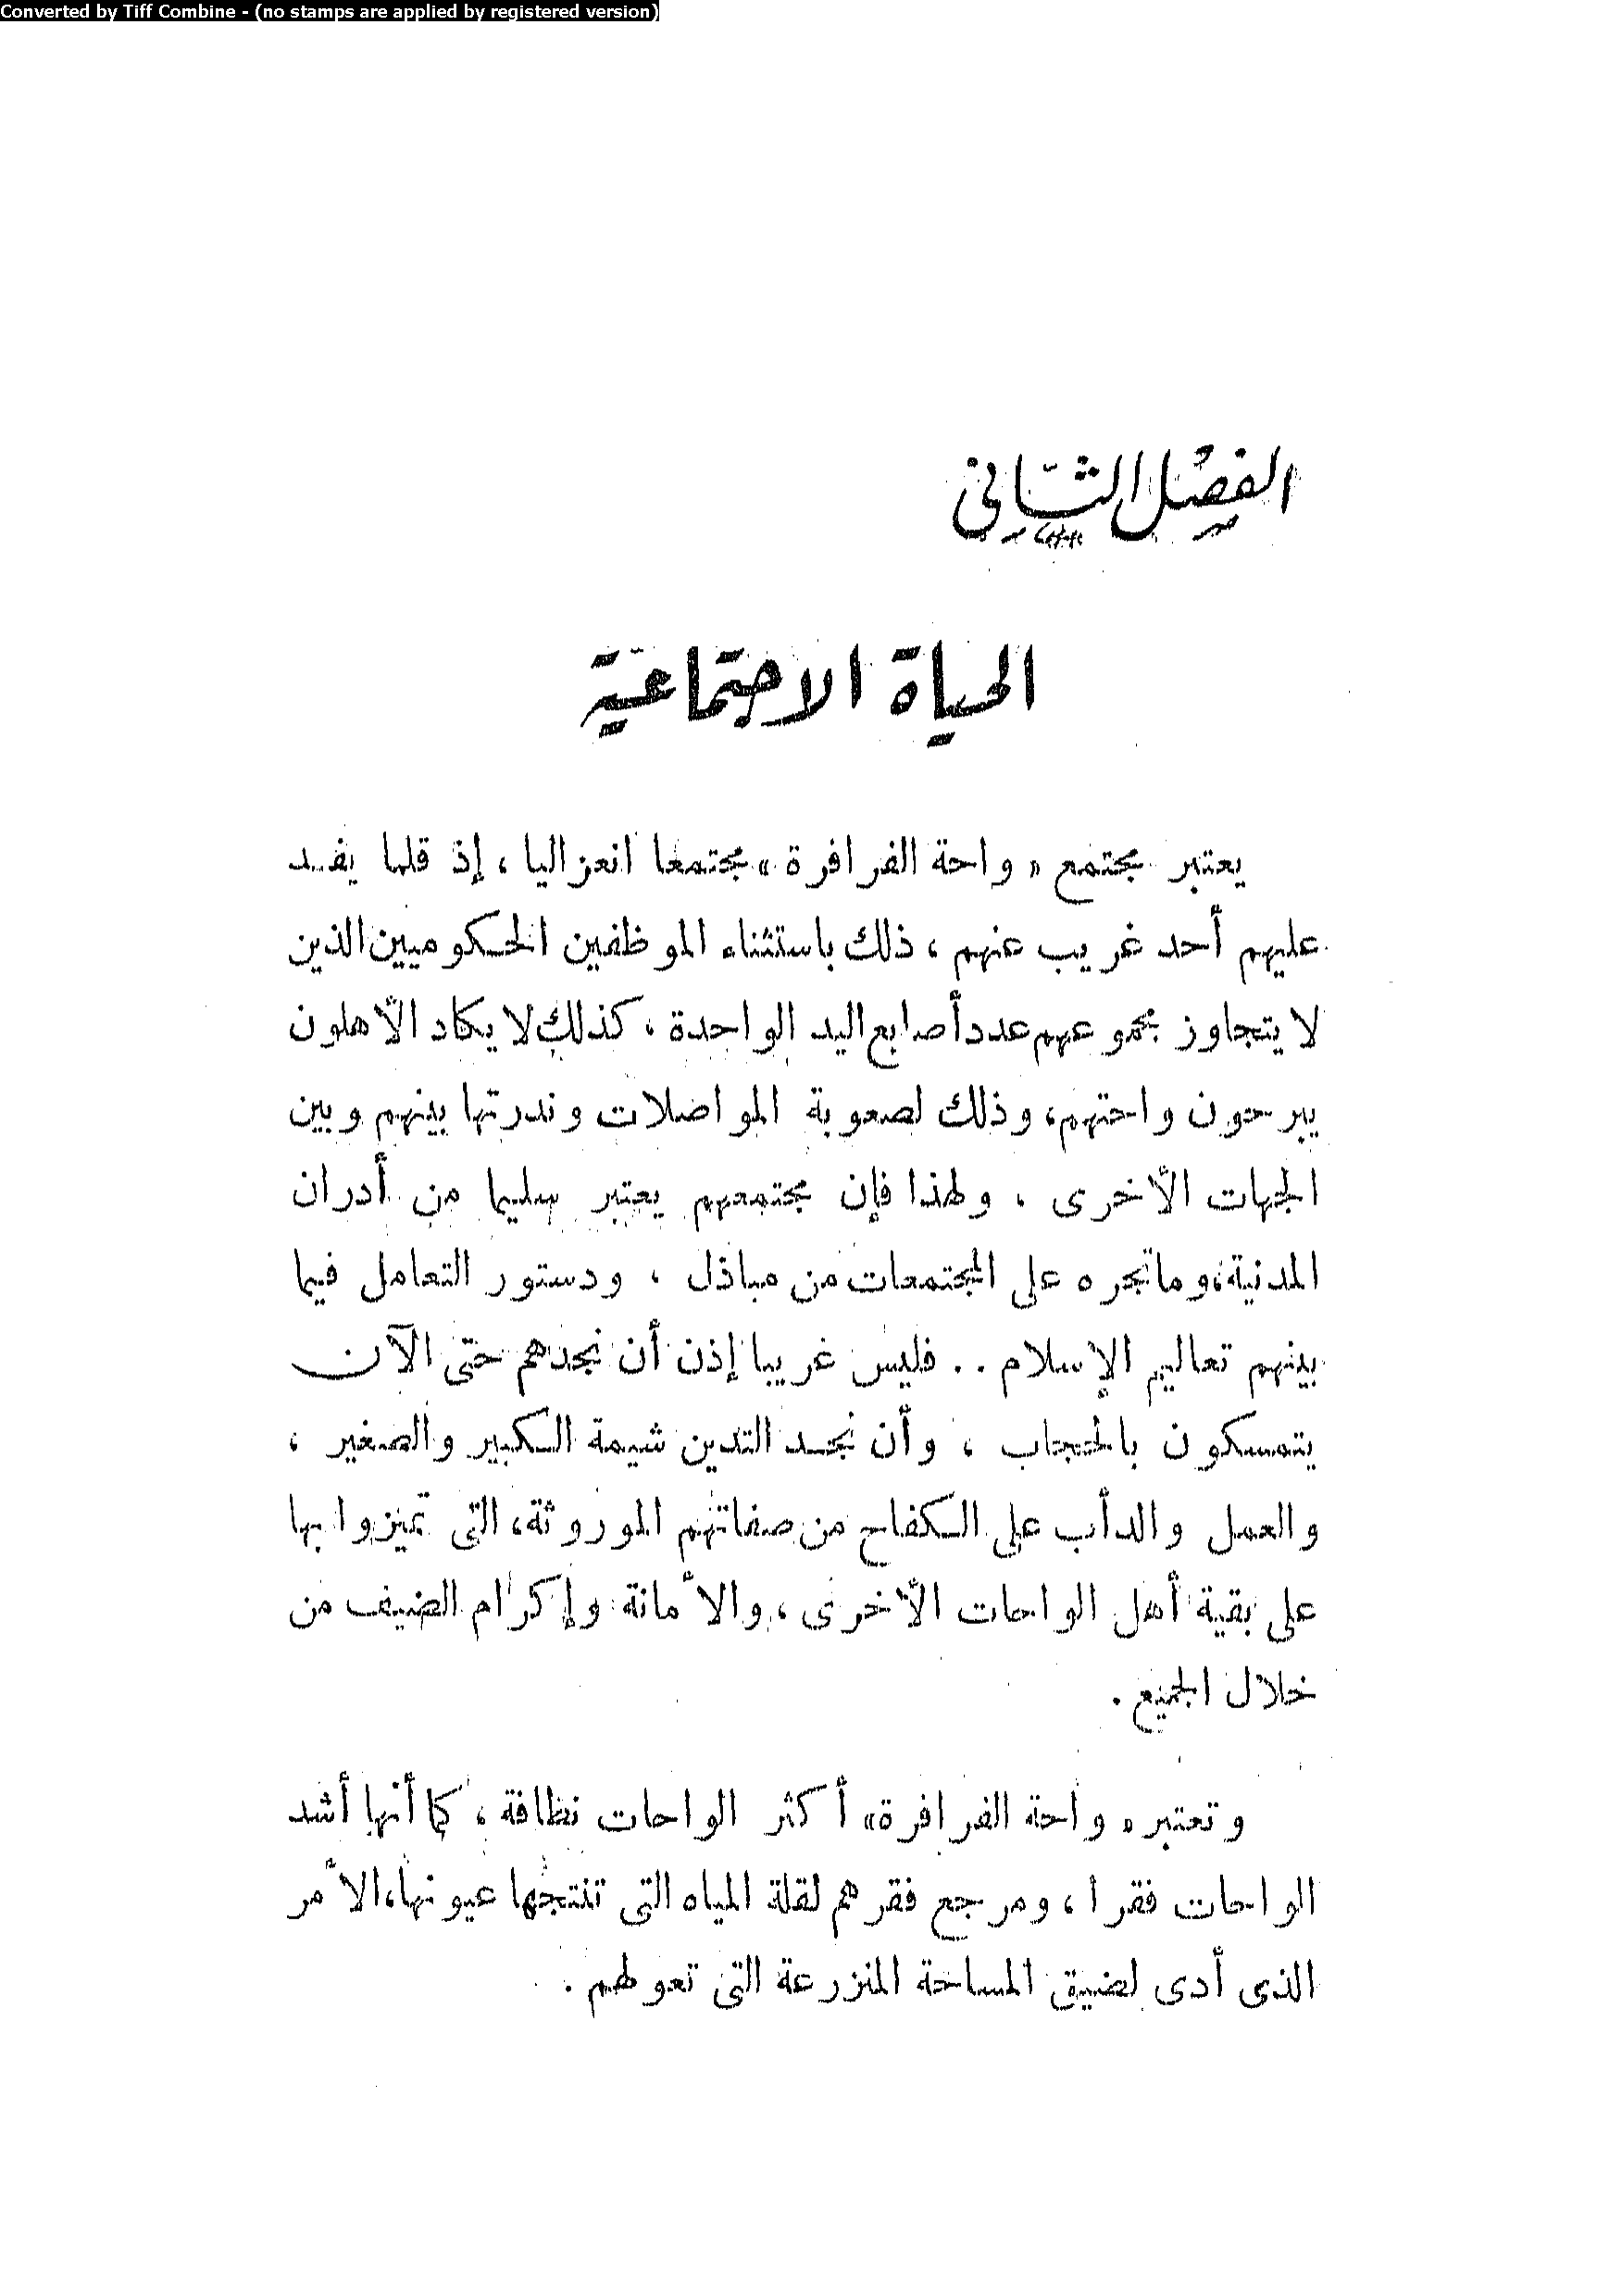 Converted by Tiff Combine - (no stamps are applied by registered version)
الفصل الثاني
الحياة الاجتماعية
يعتبر مجتمع « واحة الفرافرة » مجتمعا انعزاليا ، إذ قلما يفد
عليهم أحد غريب عنهم ، ذلك باستثناء الموظفين الحكوميين الذين
لا يتجاوز مجموعهم عدد أصابع اليد الواحدة ، كذلك لا يكاد الأهلون
يبرحون واحتهم، وذلك لصعوبة المواصلات وندرتها بينهم وبين
الجهات الأخرى . ولهذا فإن مجتمعهم يعتبر سليما من أدران
المدنية، وما تجره على المجتمعات من مباذل ، ودستور التعامل فيما
بينهم تعاليم الإسلام . . فليس غريبا إذن أن نجدهم حتى الآن
يتمسكون بالحجاب ، وأن نجد التدين شيمة الكبير والصغير ،
والعمل والدأب على الكفاح من صفاتهم الموروثة، التى تميزوا بها
على بقية أهل الواحات الأخرى ، والأمانة وإكرام الضيف من
خلال الجميع .
وتعتبر « واحة الفرافرة » أكثر الواحات نظافة ، كما أنها أشد
الواحات فقرا ، ومرجع فقرهم لقلة المياه التى تنتجها عيونها، الأمر
الذى أدى لضيق المساحة المنزرعة التى تعولهم .